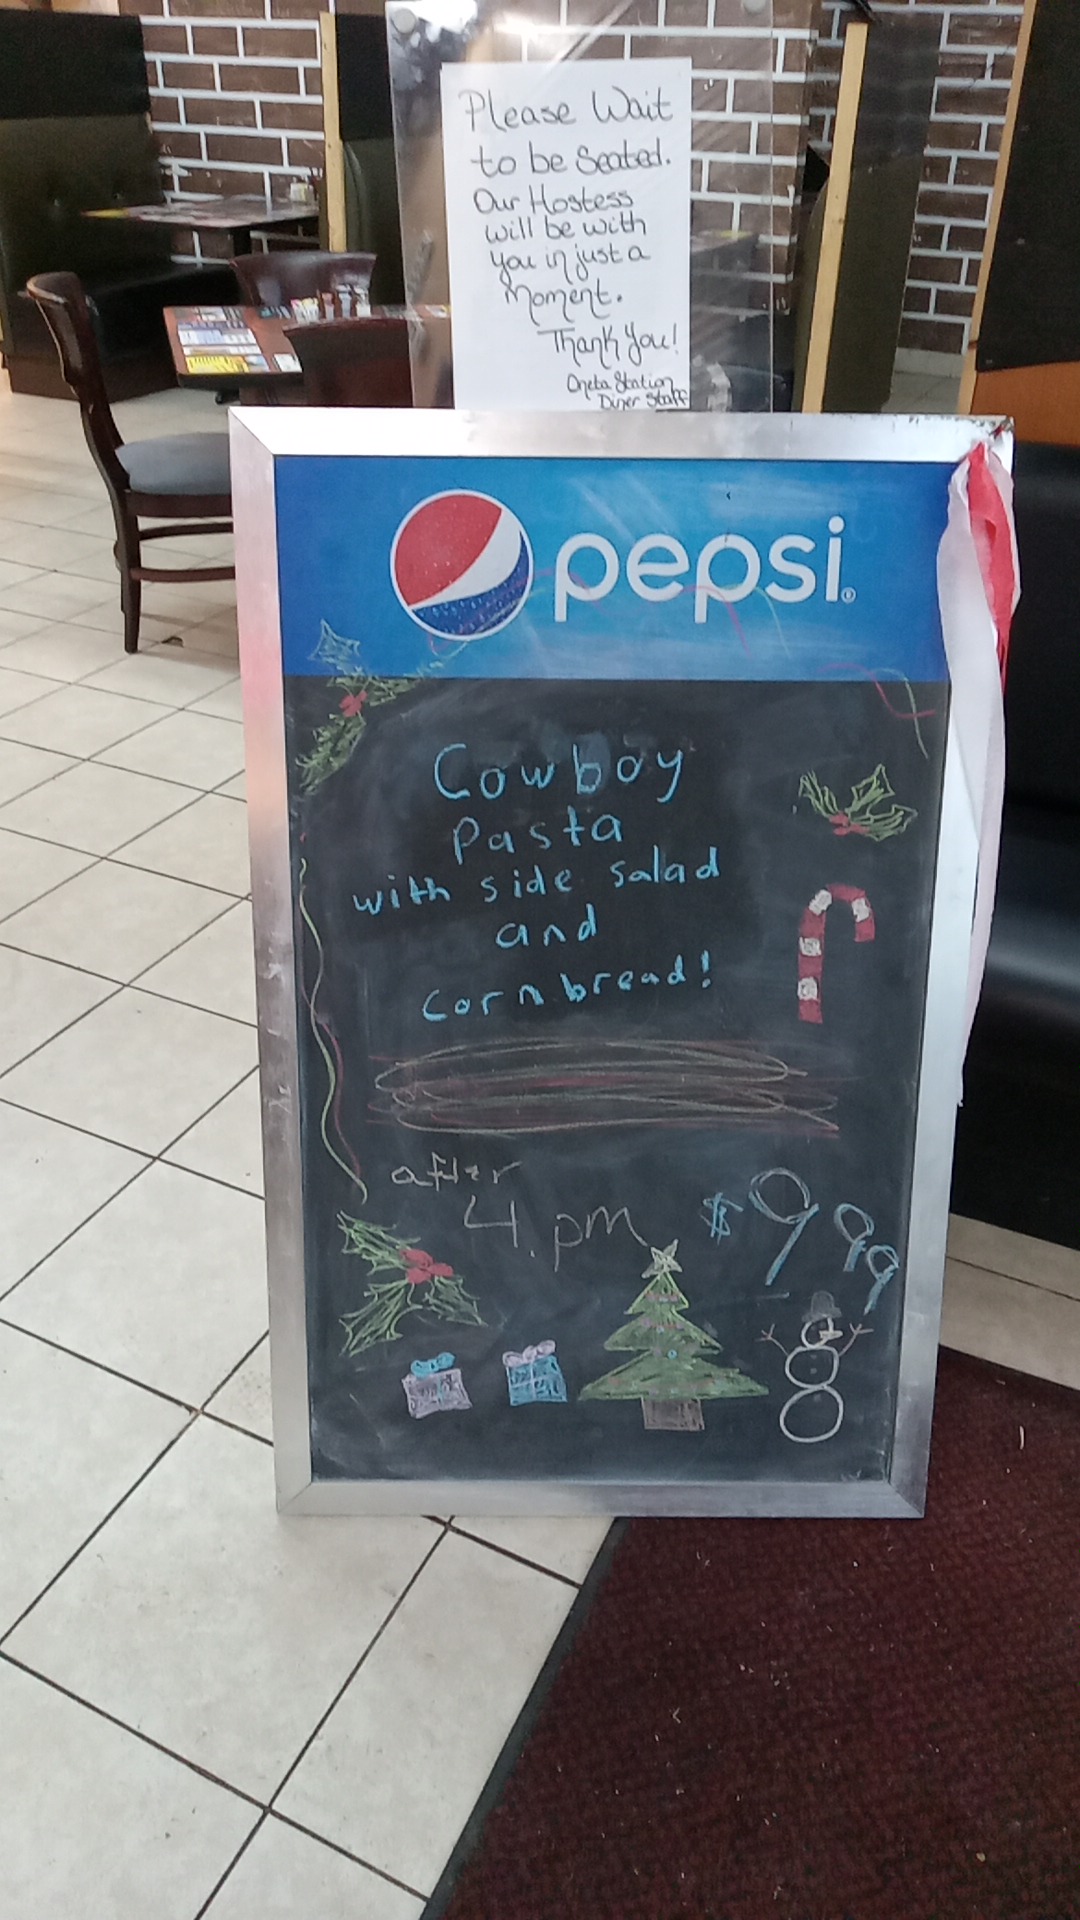 Please Wait
to be Seated.
Our Hostess
will be with
you in just a
moment.
Thank You!
Oneta Station
Diner Staff
pepsi®
Cowboy
Pasta
with side salad
and
Cornbread!
after
4. pm
$9 99